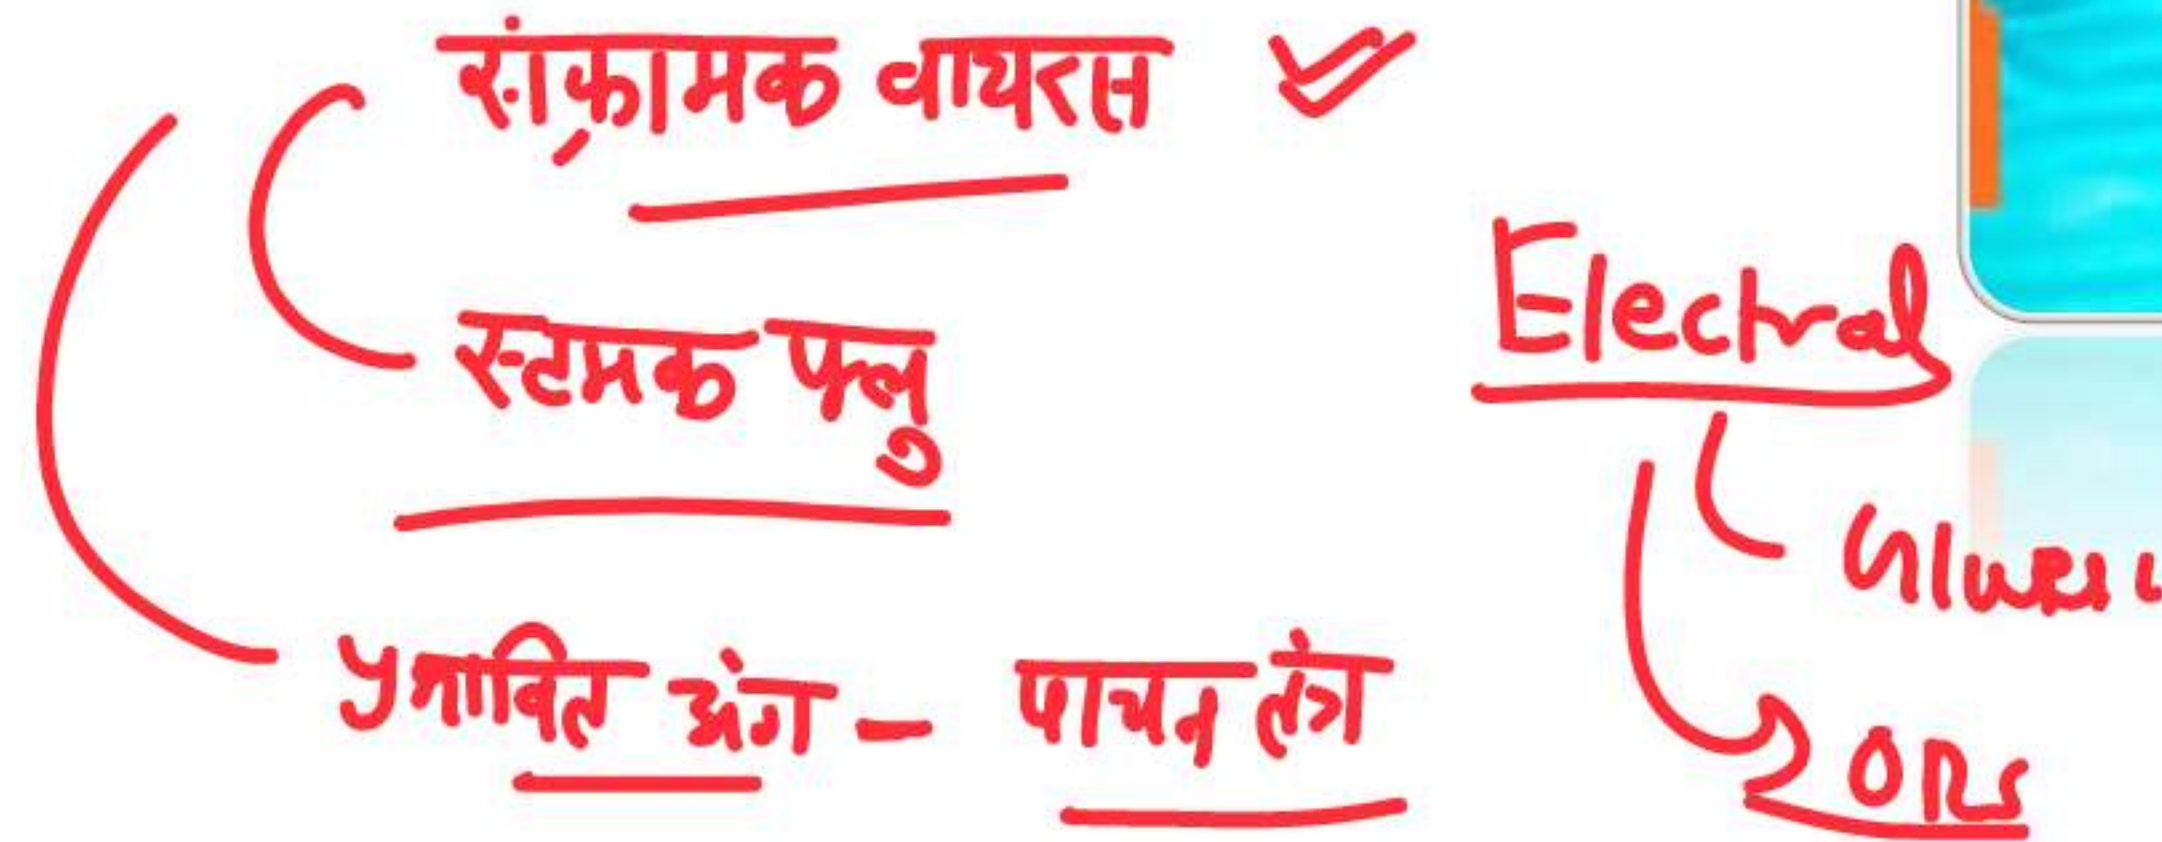 संक्रामक वायरस
स्टमक फ्लु
प्रभावित अंग - पाचन तंत्र
Electral
ORS